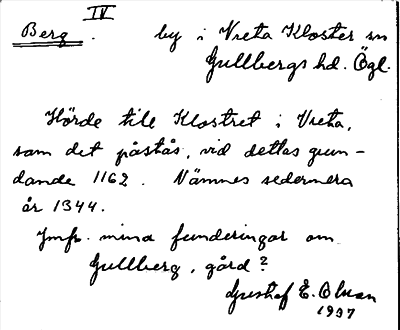 IV
Berg. by i Vreta Kloster sn
Gullbergs hd. Ögl.
Hörde till Klostret i Vreta,
som det påstås, vid dettas grun-
dande 1162. Nämnes sedermera
år 1344.
Jmfr. mina funderingar om
Gullberg, gård?
Gustaf E. Olsson
1937